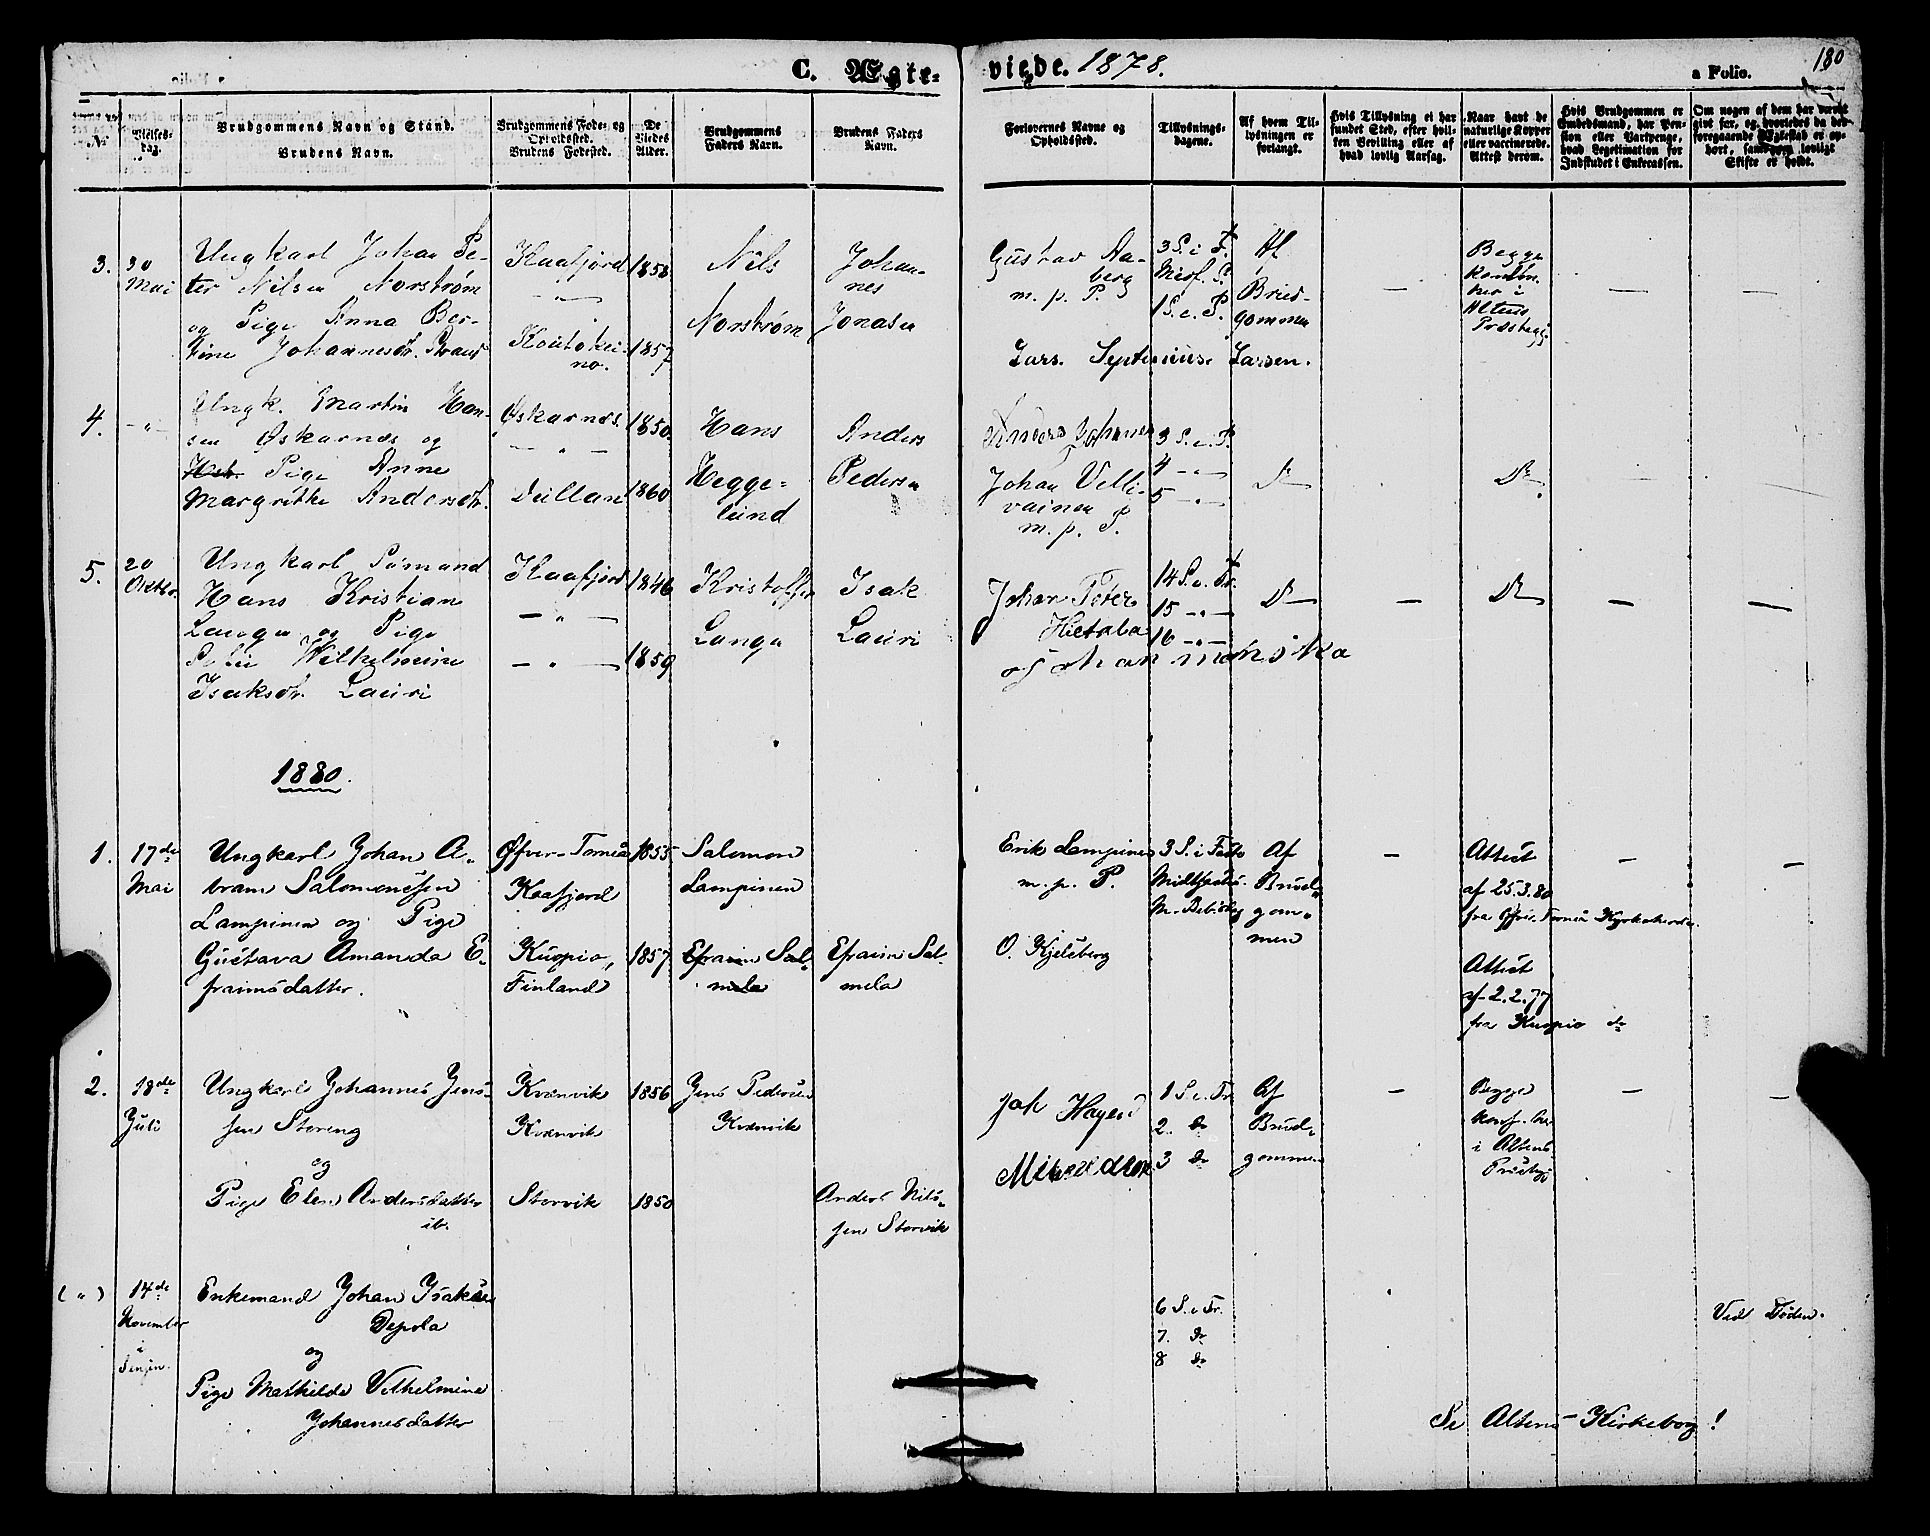 C. Ægte-
viede. 1878.
a Folio.
180
№
Vielses-
dag.
Brudgommens Navn og Stand.
Brudens Navn.
Brudgommens Føde- og
Opholdssted.
Brudens Fødested.
De
Viedes
Alder.
Brudgommens
Faders Navn.
Brudens Faders
Navn.
Forlovernes Navne og
Opholdssted.
Tillysnings-
dagene.
Af hvem Til-
lysningen er
forlangt.
Hvis Tillysning ei har
fundet Sted, efter hvil-
ken Bevilling eller af
hvad lovlig Aarsag.
Naar havt de
naturlige Kopper
eller vaccinerede.
Attest derom.
Hvis Brudgommen er
Embedsmand, har Pen-
sion eller Vartpenge,
hvad Legitimation for
Indskudet i Enkecassen.
Om nogen af dem har været
gift før, og hvorledes da det
foregaaende Ægteskab er op-
hørt, samt om lovligt
Skifte er holdt.
3.
30
Mai
Ungkarl Johan Pe-
ter Nilsen Norstrøm
og Pige Anna Ber-
tine Johannesdtr. Strand
Kaafjord
— " —
Koutokei-
no.
1858
1857
Nils
Norstrøm
Johan-
nes
Jonasen
Gustav Aa-
berg
m. p. P.
Lars Septimius Larsen.
3 S. i F.
Misf. S.
1 S. e. P.
Af
Brud-
gommen
—
Begge
Altens
Præstegj.
—
—
4.
— " —
Ungk. Martin Han-
sen Øskarnæs og
Pige Anne
Margrethe Andersdtr.
Øskarnæs.
— " —
1850
1860
Hans
Hegge-
lund
Anders
Pedersen
Anders Johnsen
Johan Velli-
vainen
m. p. P.
3 S. e. P.
4 — " —
5 — " —
Do
Do
5.
20
Oktbr.
Ungkarl Sømand
Hans Kristian
Langa og Pige
Wilhelmine
Isaksdtr. Lauri
Kaafjord
— " —
— " —
1846
1859
Kristoffer
Langa
Isak
Lauri
Johan Peter
Hietala
14 S. e. Tr.
15 — " —
16 — " —
Do
—
Do
—
—
1880.
1.
17de
Mai
Ungkarl Johan A-
bram Salomonssen
Lampinen og Pige
Gustava Amanda E-
fraimsdatter.
Øfver-Torneå
Kaafjord
Kuopio,
Finland
1855
1857
Salomon
Lampinen
Efraim Sal-
mela
Efraim Sal-
mela
Erik Lampinen
m. p. P.
O. Kjelsberg
3 S. i Faste
Midtfaste.
M. Bebud.
Af
Brud-
gom-
men
—
Attest
af 25.3.80
fra Øfver Torneå Kyrkoherde.
Attest
af 2.2.77
fra Kuopio do
—
—
2.
18de
Juli
Ungkarl Johannes Jens-
sen Storeng
og
Pige Elen Andersdatter
ib.
Kvænvik
Kvænvik
Storvik
1856
1850
Jens Pedersen
Kvænvik
Anders Nils-
sen Storvik
1 S. e. Tr.
2. do
3 do
Af
Brud-
gommen
—
Begge
konf.
i Altens
Præstegj.
—
—
( " )
14de
November
Enkemand Johan Isaksen
Depola
og
Pige Mathilde Vilhelmine
Johannesdatter
6 S. e. Tr.
7. do
8 do
Ved Døden.
Se Altens-Kirkebog!